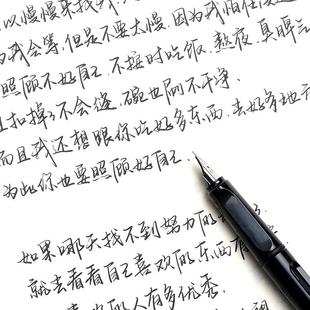 以慢慢来找我
我会等,但是不要太慢,因为我怕
照顾不好自己,不按时吃饭,熬夜,真脾气
扣掉了不会缝,碗也刷不干净.
而且我还想跟你吃好多东西,去好多地方
为此你也要照顾好自己.
如果哪天找不到努力的
就去看看自己喜欢的东西有
的人有多优秀.